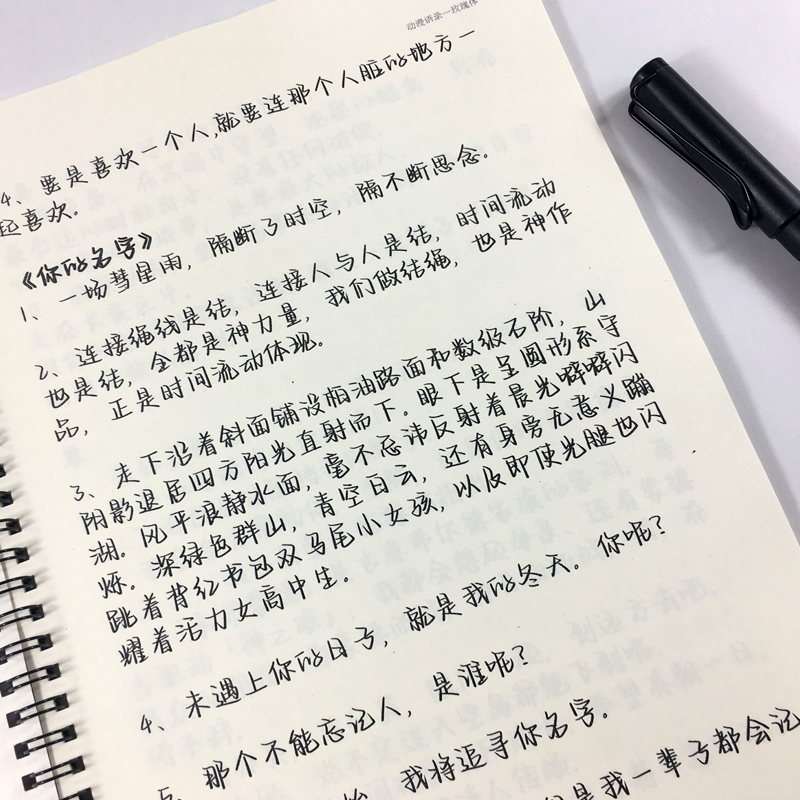 动漫语录—玫瑰体
4、要是喜欢一个人,就要连那个人脏的地方一
起喜欢。
《你的名字》
1、一场彗星雨，隔断了时空，隔不断思念。
2、连接绳线是结，连接人与人是结，时间流动
也是结，全都是神力量，我们做结绳，也是神作
品，正是时间流动体现。
3、走下沿着斜面铺设柏油路面和数级石阶，山
阴影退居四方阳光直射而下。眼下是呈圆形系守
湖。风平浪静水面，毫不忌讳反射着晨光噼噼闪
烁。深绿色群山，青空白云，还有身旁无意义蹦
跳着背红书包双马尾小女孩，以及即使光腿也闪
耀着活力女高中生。
4、未遇上你的日子，就是我的冬天。你呢？
5、那个不能忘记人，是谁呢？
我将追寻你名字。
是我一辈子都会记